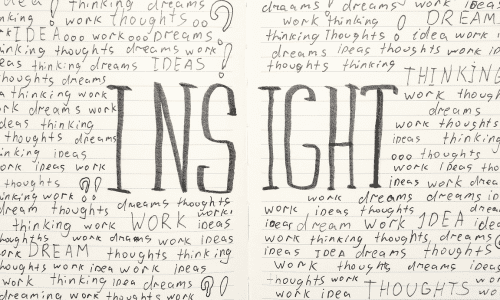 idea! thinking dreams
work thoughts ooo ?
IDEA ooo work ooo Dreams
thinking thoughts dreams work !
ideas thinking dreams IDEAS
thoughts dreams
thinking work
work dreams work
ideas thinking
thoughts dreams
thinking ideas
work ideas work
thoughts ?!
thinking work
INS
dreams thoughts
dream thoughts work
thinking work WORK ideas
thoughts work dreams work ideas
work DREAM thoughts thinking
thoughts work idea work ideas
work thinking idea dreams
dreaming work thoughts work
dreams ! dreams work ideas
work thinking ! DREAM
thinking thoughts ! idea work
dreams ideas thoughts work
ideas thinking thoughts
THINKING
work thoughts
dreams
work thoughts
ideas thinking
ooo thoughts
work ideas
ideas work dreams
IGHT
work dreams dreams
work ideas thoughts dreams
ideas dream work IDEA ideas
work thinking ideas thoughts
ideas IDEA dreams thoughts
Work thoughts dreams ideas
thoughts work thinking ideas
work idea THOUGHTS